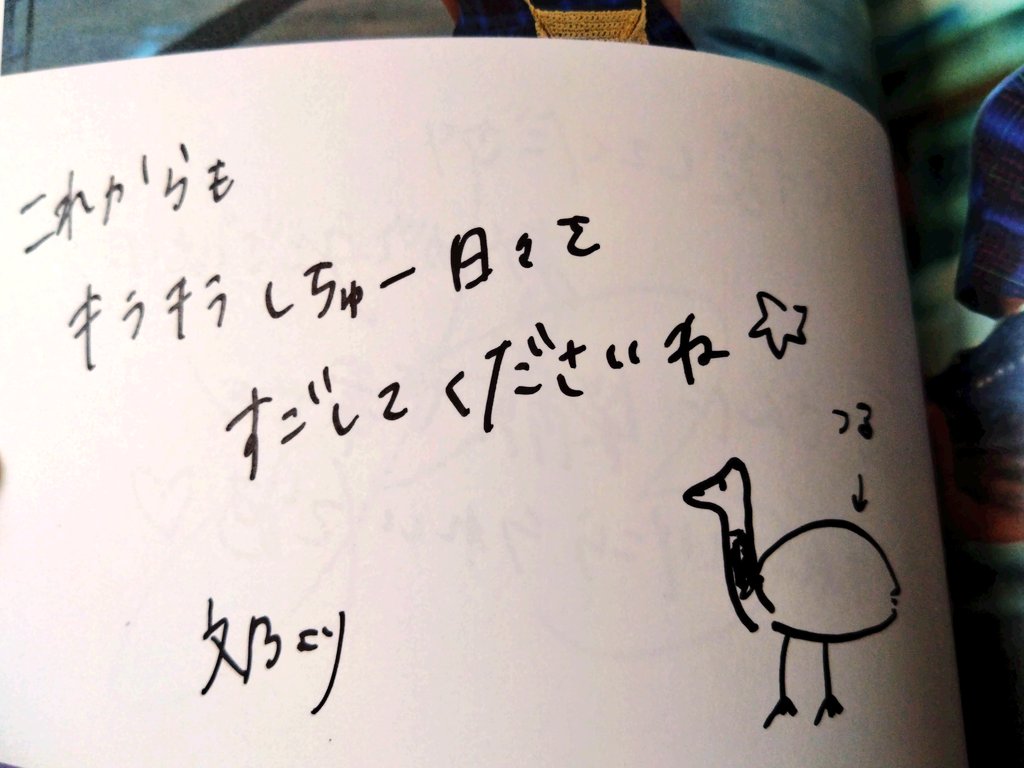 これからも
キラキラしちゅー日々を
すごしてくださいね☆
つる
↓
文乃より